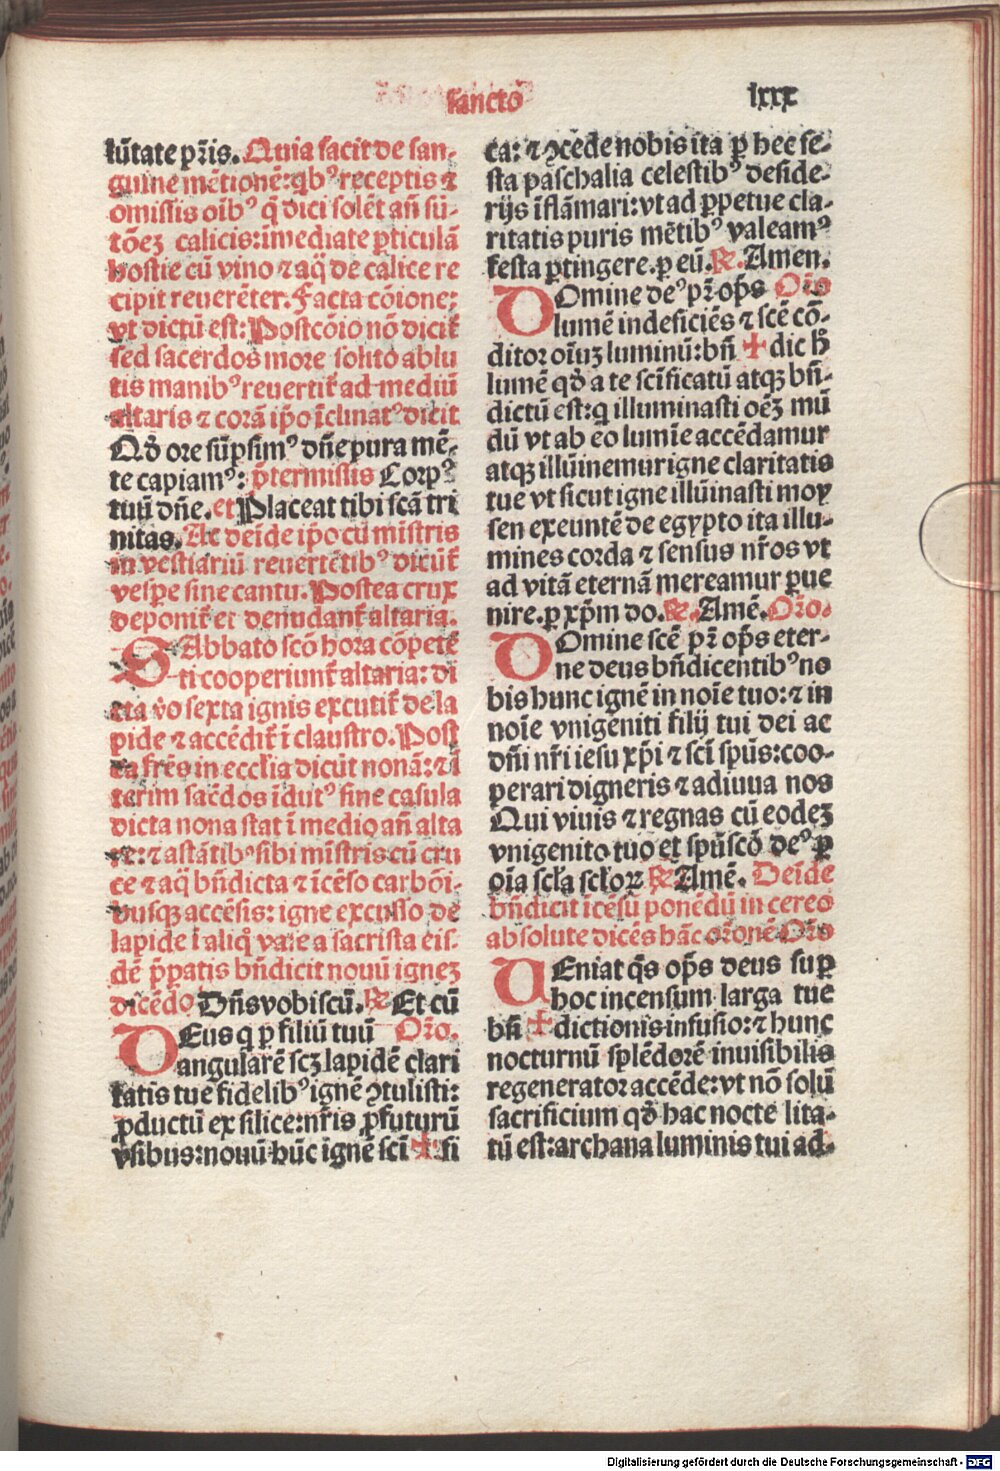 sanctō
lxxx
lūtate pr̄is. Quia facit de san-
guine mētionē: qbꝰ receptis ⁊
omissis oībꝰ q̄ dici solēt añ sū-
tōeʒ calicis: imediate ꝑticulā
hostie cū vino ⁊ aq̄ de calice re
cipit reuerēter. Facta cōione:
vt dictū est: Postcōio nō dicit̄
sed sacerdos more solito ablu
tis manibꝰ reuertit̄ ad mediū
altaris ⁊ corā ip̄o īclinatꝰ dicit
Qd̄ ore sūpsimꝰ dn̄e pura mē-
te capiamꝰ: p̄termissis Corpꝰ
tuū dn̄e. et Placeat tibi scā tri
nitas. Ac deīde ip̄o cū mīstris
in vestiariū reuertētibꝰ dicūt̄
vesꝑe sine cantu. Postea crux
deponit̄ et denudant̄ altaria.
SAbbato scō hora cōpetē
ti cooperiunt̄ altaria: di
cta v̄o sexta ignis excutit̄ de la
pide ⁊ accēdit̄ ī claustro. Post
ea fr̄es in ecclīa dicūt nonā: ⁊ ī
terim sac̄dos īdutꝰ sine casula
dicta nona stat ī medio añ alta
re: ⁊ astātibꝰ sibi mīstris cū cru
ce ⁊ aq̄ bn̄dicta ⁊ īcēso carbōi-
busqʒ accēsis: igne excusso de
lapide ī aliq̊ vase a sacrista eis-
dē p̄patis bn̄dicit nouū igneʒ
dicēdo Dn̄s vobiscū. ℟ Et cū
DEus q ꝑ filiū tuū Orō.
angularē scʒ lapidē clari
tatis tue fidelibꝰ ignē ↄtulisti:
ꝓductū ex silice: nr̄is ꝓfuturū
vsibus: nouū hūc ignē scī ✠ si
ca: ⁊ ↄcede nobis ita ꝑ hec fe-
sta paschalia celestibꝰ deside-
rijs īflāmari: vt ad ꝑpetue cla-
ritatis puris mētibꝰ valeamꝰ
festa ꝑtingere. ꝑ eū. ℟. Amen.
DOmine deꝰ pr̄ op̄s Orō
lumē indeficiēs ⁊ scē cō-
ditor oīuʒ luminū: bn̄ ✠ dic h̄
lumē qd̄ a te scīficatū atqʒ bn̄-
dictū est: q illuminasti oēʒ mū
dū vt ab eo lumīe accēdamur
atqʒ illūinemur igne claritatis
tue vt sicut igne illūinasti moy
sen exeuntē de egypto ita illu-
mines corda ⁊ sensus nr̄os vt
ad vitā eternā mereamur ꝑue
nire. ꝑ xp̄m do. ℟. Amē. Orō.
DOmine scē pr̄ op̄s eter-
ne deus bn̄dicentibꝰ no
bis hunc ignē in noīe tuo: ⁊ in
noīe vnigeniti filij tui dei ac
dn̄i nr̄i iesu xp̄i ⁊ scī sp̄us: coo-
perari digneris ⁊ adiuua nos
Qui viuis ⁊ regnas cū eodeʒ
vnigenito tuo et spū scō deꝰ ꝑ
oīa scl̄a scl̄oꝝ ℟ Amē. Deīde
bn̄dicit īcēsū ponēdū in cereo
absolute dicēs hāc orōnē Orō
UEniat q̄s op̄s deus suꝑ
hoc incensum larga tue
bn̄ ✠ dictionis infusio: ⁊ hunc
nocturnū splēdorē inuisibilis
regenerator accēde: vt nō solū
sacrificium qd̄ hac nocte lita-
tū est: archana luminis tui ad-
Digitalisierung gefördert durch die Deutsche Forschungsgemeinschaft - DFG